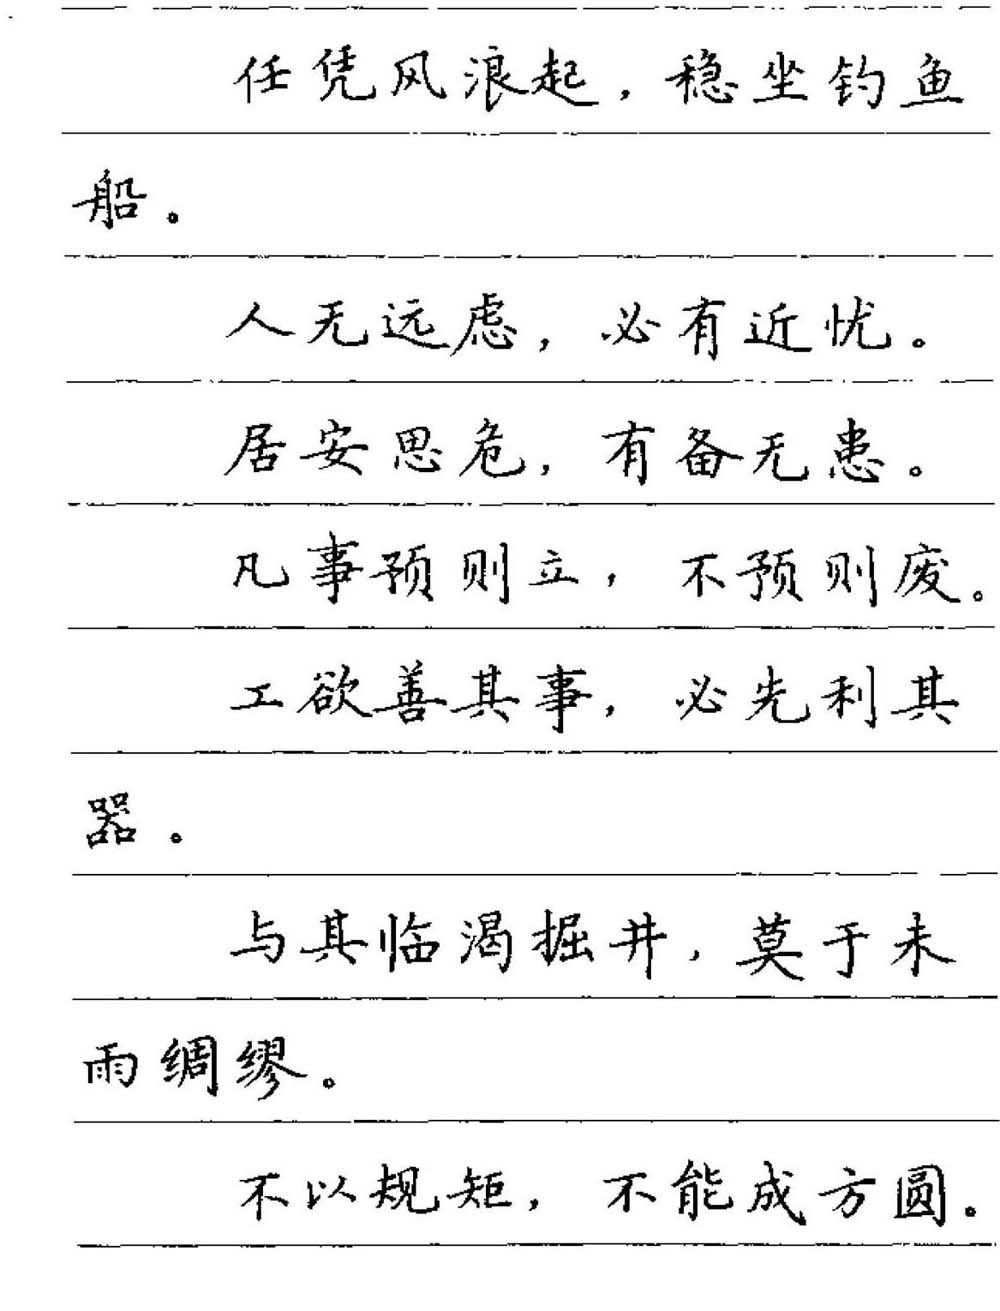 任凭风浪起，稳坐钓鱼
船。
人无远虑，必有近忧。
居安思危，有备无患。
凡事预则立，不预则废。
工欲善其事，必先利其
器。
与其临渴掘井，莫于未
雨绸缪。
不以规矩，不能成方圆。